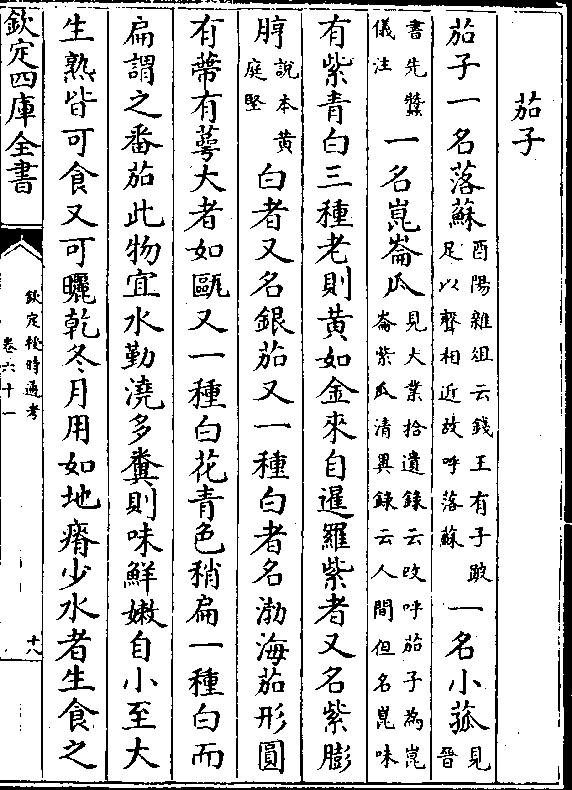 茄子
茄子一名落蘇酉陽雜俎云錢王有子跛足以聲相近故呼落蘇一名小菰見晉
書先蠶儀注一名崑崙瓜見大業拾遺錄云改呼茄子為崑崙紫瓜清異錄云人間但名崑味
有紫青白三種老則黃如金來自暹羅紫者又名紫膨
脝說本黃庭堅白者又名銀茄又一種白者名渤海茄形圓
有蔕有蕚大者如甌又一種白花青色稍扁一種白而
扁謂之番茄此物宜水勤澆多糞則味鮮嫩自小至大
生熟皆可食又可曬乾冬月用如地瘠少水者生食之
欽定四庫全書
欽定授時通考
卷六十一
十八